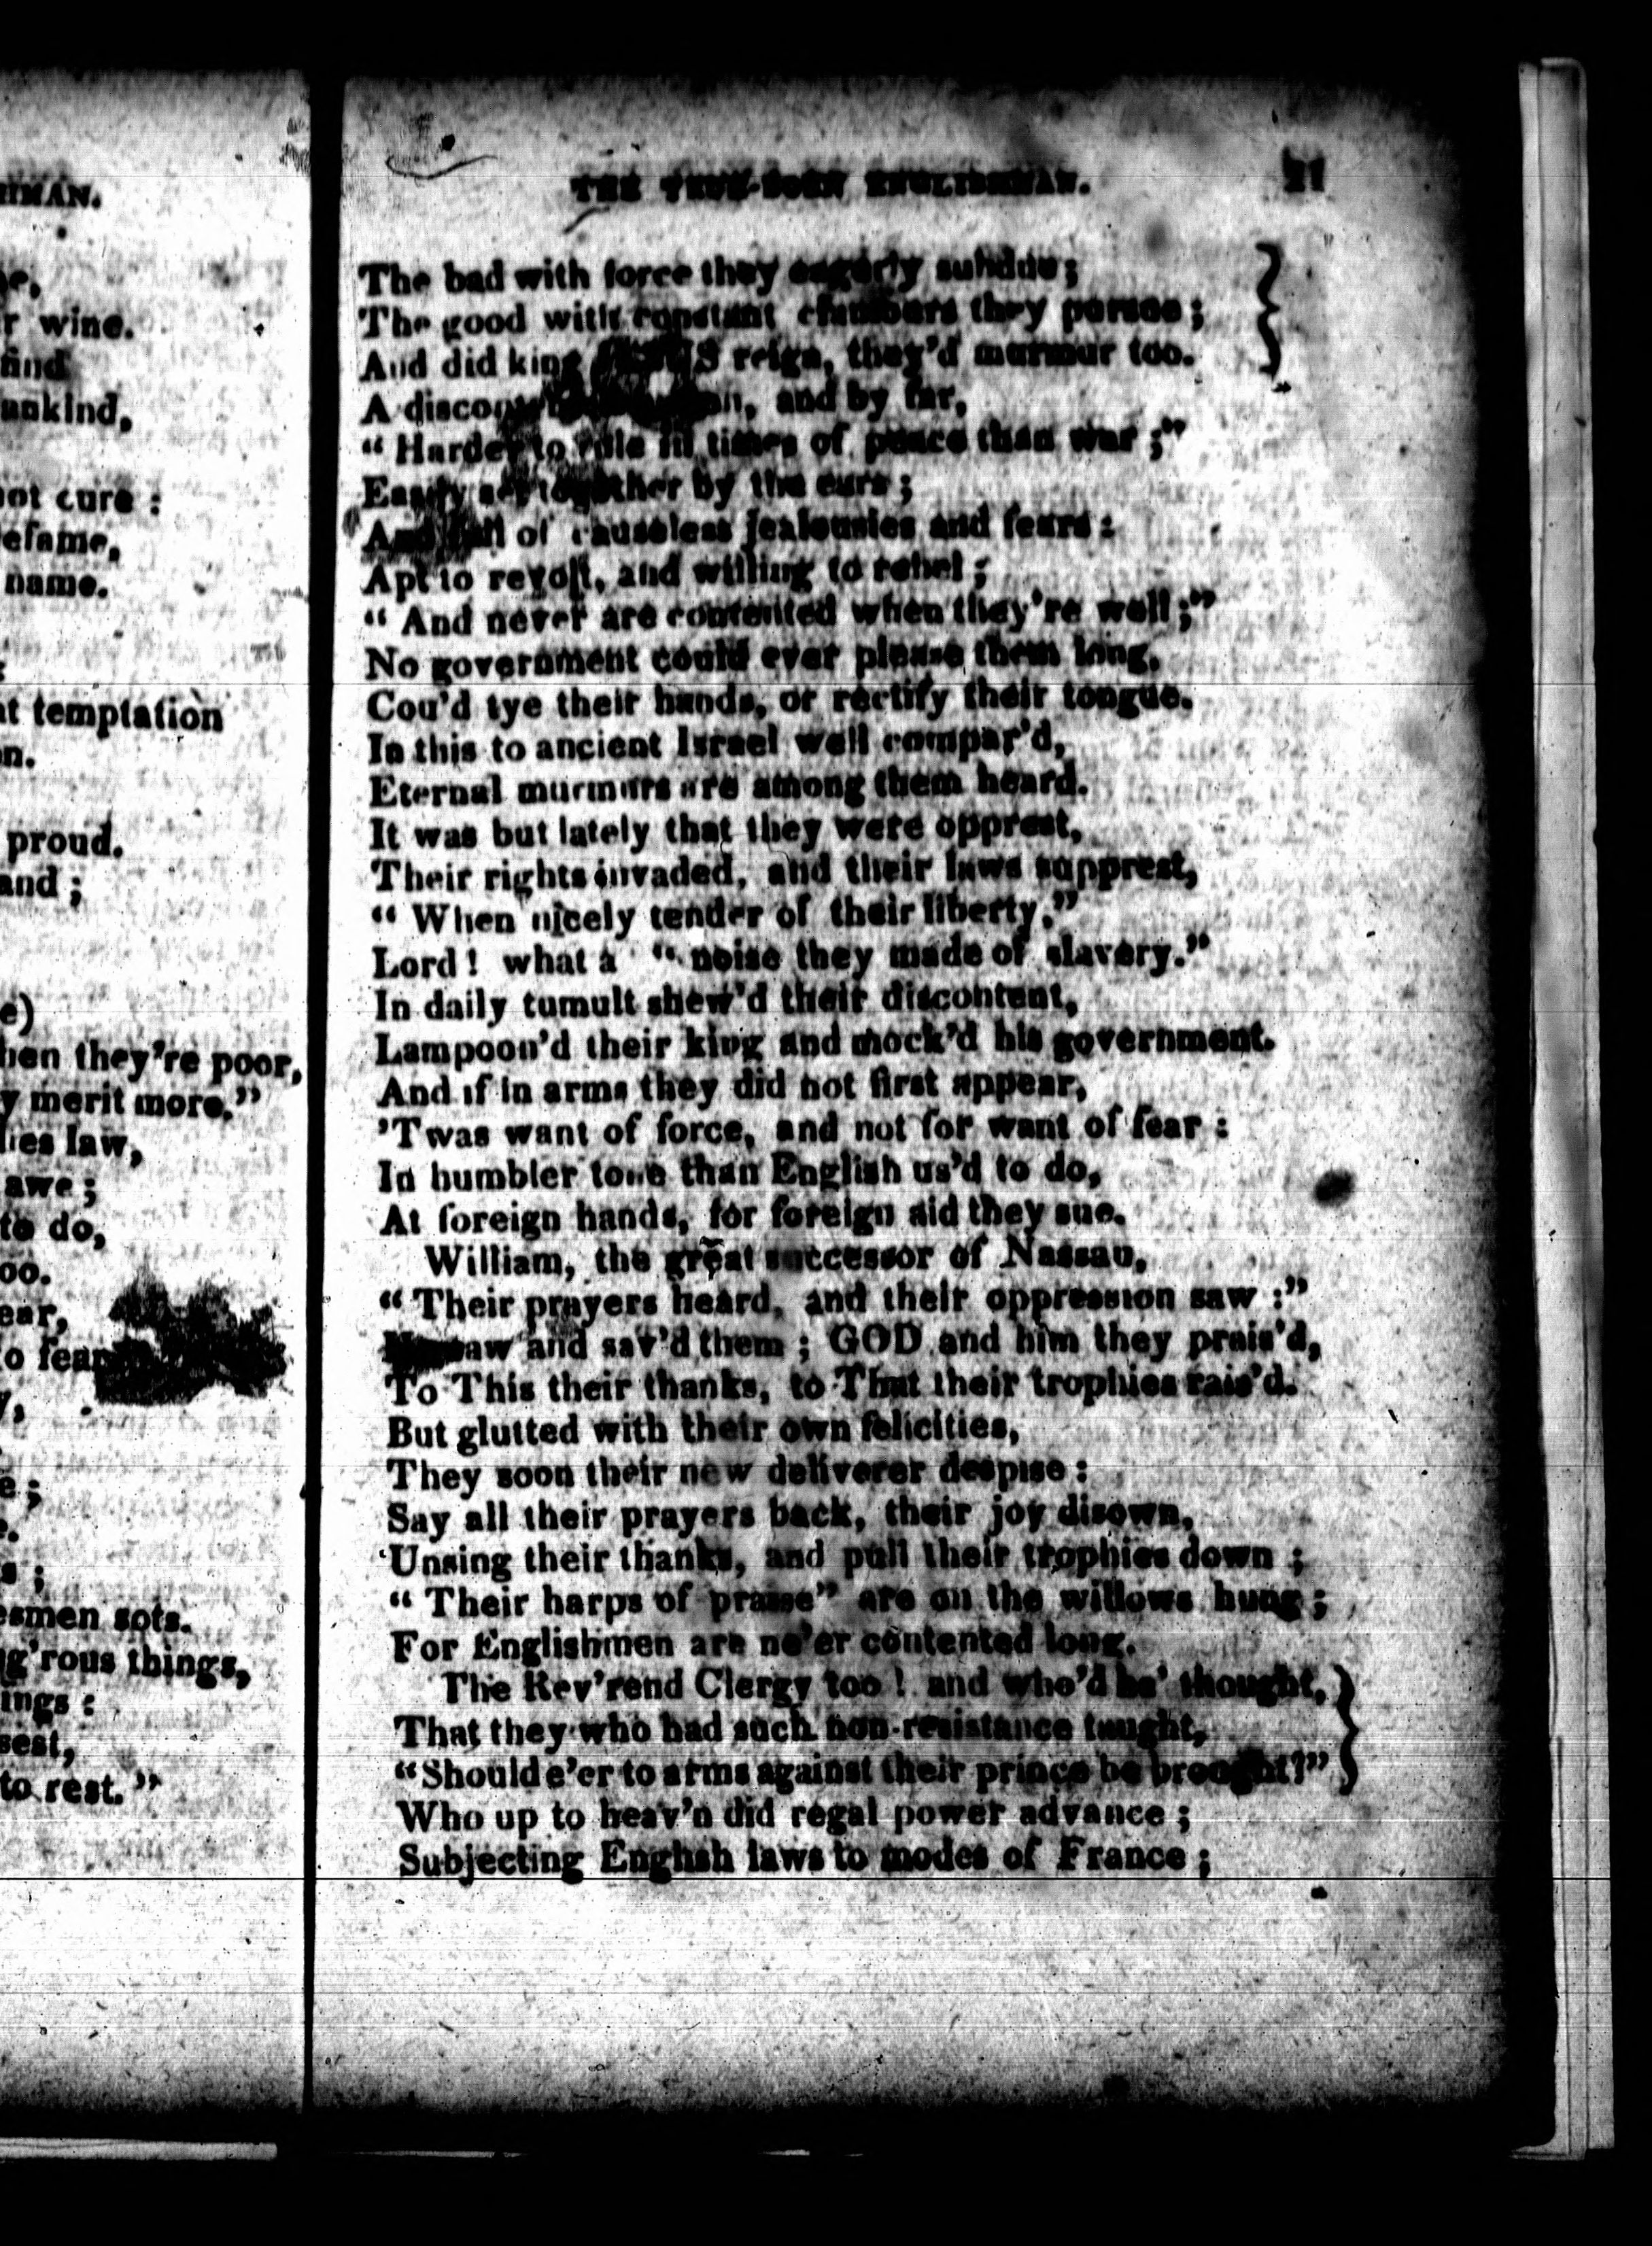 HMAN.
r wine.
find
ankind,
not cure :
efame,
name.
nt temptation
n.
proud.
and ;
e)
hen they're poor,
y merit more."
lies law,
awe ;
to do,
oo.
ear,
to fear
y,
e ;
e.
s ;
esmen sots.
g'rous things,
ings :
sest,
to rest."
THE TRUE-BORN ENGLISHMAN. 21
The bad with force they eagerly subdue;
The good with constant clamours they pursue;
And did king JESUS reign, they'd murmur too.
A and by far,
" Harder to rule in times of peace than war ;"
Easily set together by the ears ;
And full of causeless jealousies and fears :
Apt to revolt, and willing to rebel ;
" And never are contented when they're well ;"
No government could ever please them long,
Cou'd tye their hands, or rectify their tongue.
In this to ancient Israel well compar'd,
Eternal murmurs are among them heard.
It was but lately that they were opprest,
Their rights invaded, and their laws supprest,
" When nicely tender of their liberty,"
Lord ! what a " noise they made of slavery."
In daily tumult shew'd their discontent,
Lampoon'd their king and mock'd his government.
And if in arms they did not first appear,
'Twas want of force, and not for want of fear :
In humbler tone than English us'd to do,
At foreign hands, for foreign aid they sue.
William, the great successor of Nassau,
" Their prayers heard, and their oppression saw :"
and sav'd them ; GOD and him they prais'd,
To This their thanks, to That their trophies rais'd.
But glutted with their own felicities,
They soon their new deliverer despise :
Say all their prayers back, their joy disown,
Unsing their thanks, and pull their trophies down ;
" Their harps of praise" are on the willows hung ;
For Englishmen are ne'er contented long.
The Rev'rend Clergy too ! and who'd ha' thought,
That they who had such non-resistance taught,
" Should e'er to arms against their prince be brought?"
Who up to heav'n did regal power advance ;
Subjecting English laws to modes of France ;